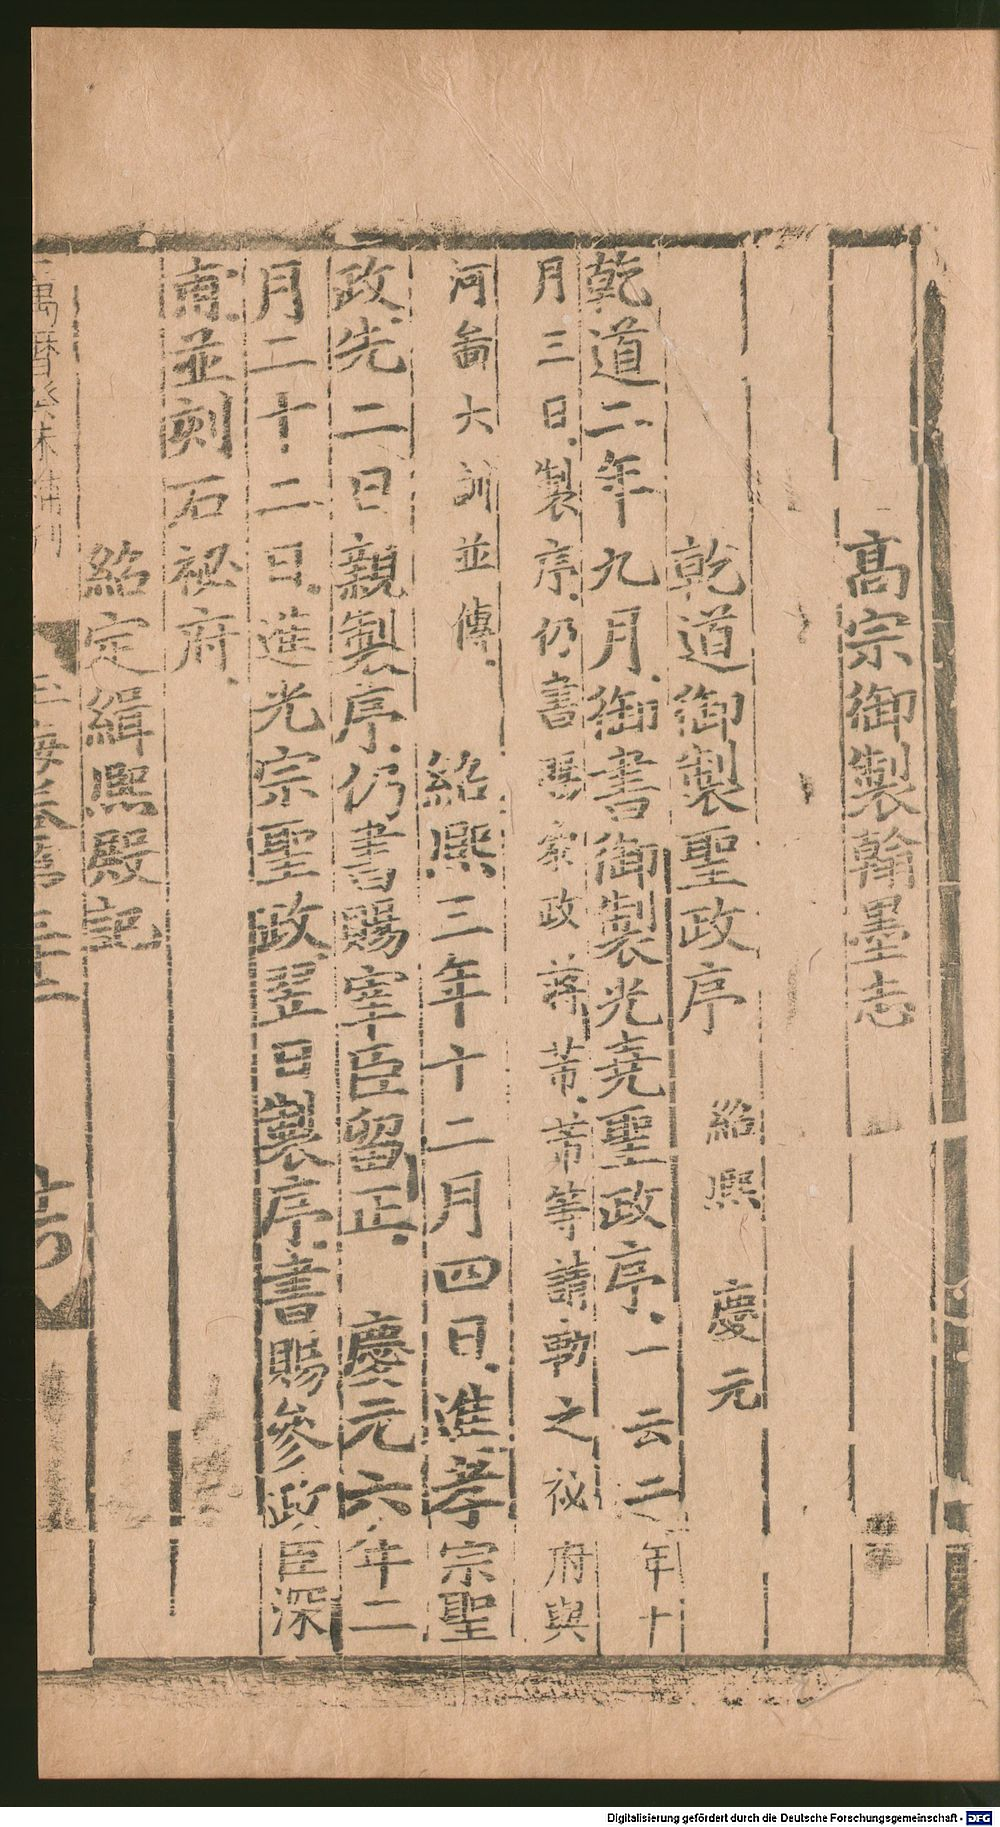 高宗御製翰墨志
乾道御製聖政序 紹熙 慶元
乾道二年九月御書御製光堯聖政序一云二年十
月三日製序仍書賜參政蔣芾芾等請勒之祕府與
河圖大訓並傳 紹熙三年十二月四日進孝宗聖
政先二日親製序仍書賜宰臣留正 慶元六年二
月二十二日進光宗聖政翌日製序書賜參政臣深
甫並刻石祕府
紹定緝熙殿記
萬曆癸未補刊
玉海卷第三十二
Digitalisierung gefördert durch die Deutsche Forschungsgemeinschaft - DFG